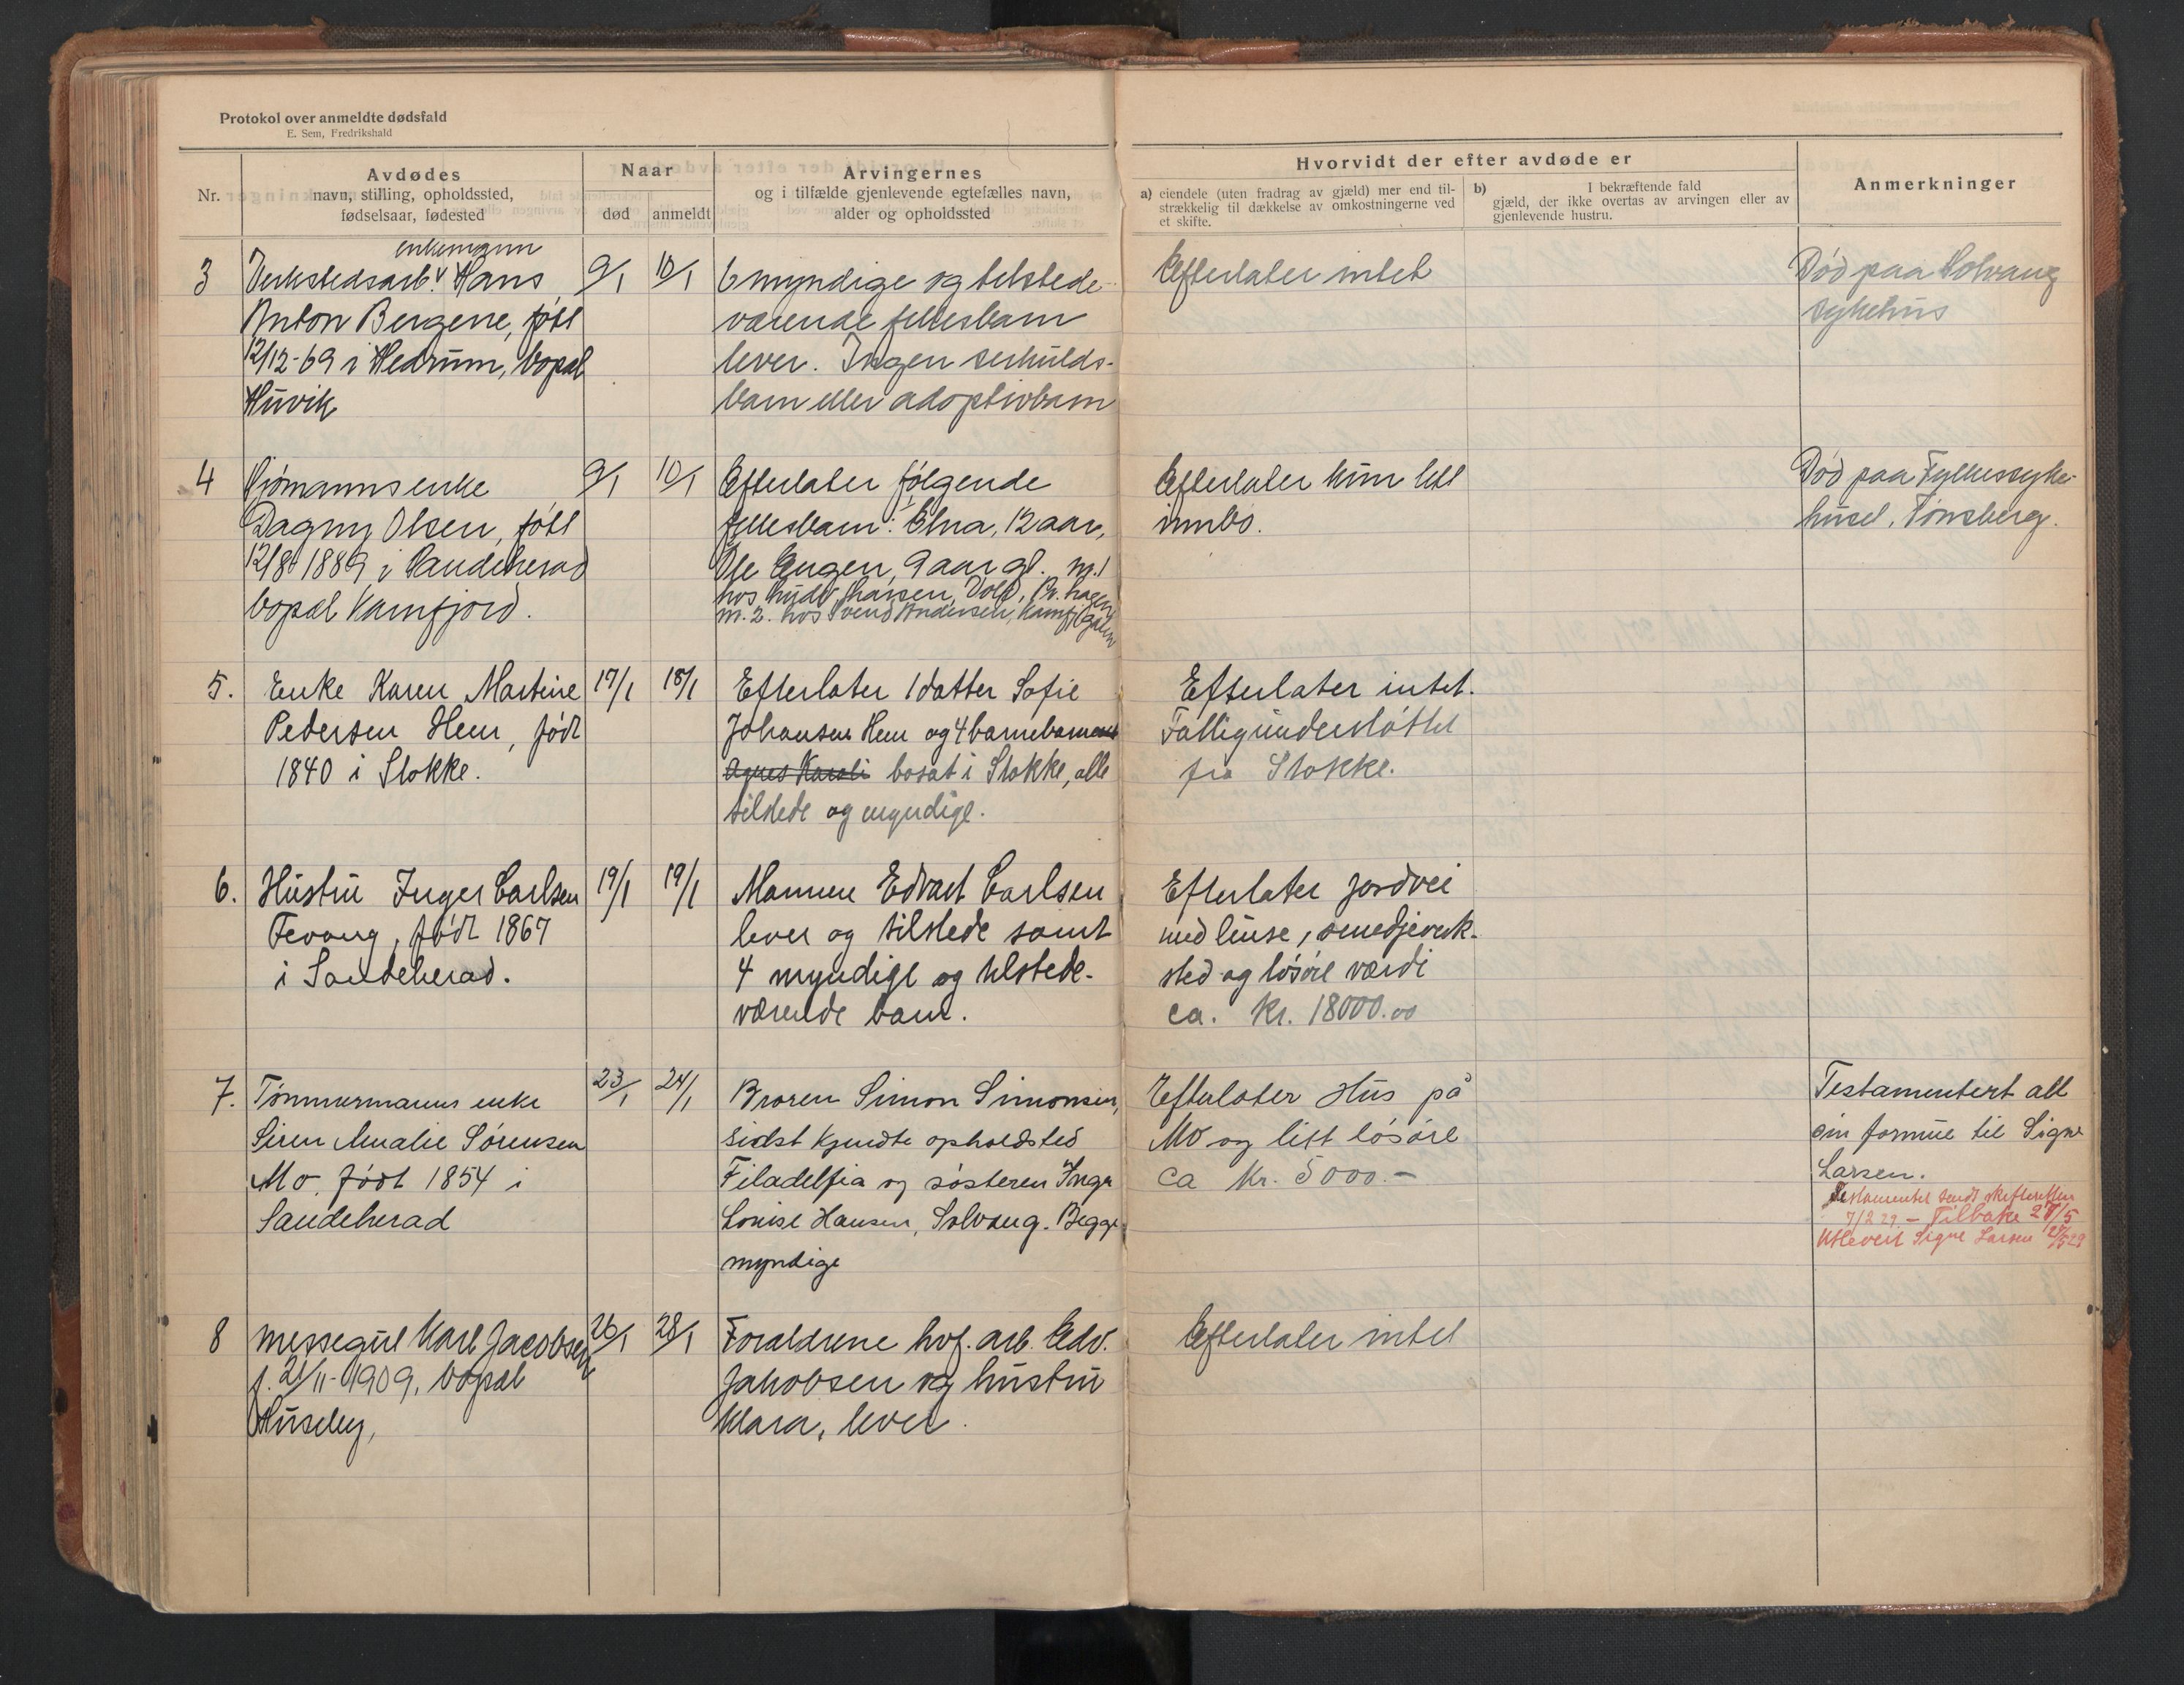 Protokol over anmeldte dødsfald
E. Sem, Fredrikshald
Nr.
Avdødes
navn, stilling, opholdssted,
fødselsaar, fødested
Naar
død
anmeldt
Arvingernes
og i tilfælde gjenlevende egtefælles navn,
alder og opholdssted
Hvorvidt der efter avdøde er
a) eiendele (uten fradrag av gjæld) mer end til-
strækkelig til dækkelse av omkostningerne ved
et skifte.
b) I bekræftende fald
gjæld, der ikke overtas av arvingen eller av
gjenlevende hustru.
Anmerkninger
enkemann
3 Verkstedsarb. Hans
Anton Bergene, født
12/12-69 i Hedrum, bopæl
Huvik
9/1
10/1
6 myndige og tilstede-
værende fellesbarn
lever. Ingen serkulds-
barn eller adoptivbarn
Efterlater intet
Død paa Solvang
sykehus
4 Sjømannsenke
Dagny Olsen, født
12/8 1889 i Sandeherad
bopæl Kamfjord.
9/1
10/1
Efterlater følgende
fellesbarn: Elna, 12 aar,
Ole Eugen, 9 aar gl. m. 1
hos Ludv. Larsen, Vold,
m. 2. hos Svend Andersen,
Efterlater kun litt
innbo.
Død paa Fylkessyke-
huset, Tønsberg.
5. Enke Karen Martine
Pedersen Hem, født
1840 i Stokke.
17/1
18/1
Efterlater 1 datter Sofie
Johansen Hem og 4 barnebarn
Agnes Karoli bosat i Stokke, alle
tilstede og myndige.
Efterlater intet.
Fattigunderstøttet
fra Stokke.
6. Hustru Inger Carlsen
Fevang, født 1867
i Sandeherad.
19/1
19/1
Mannen Edvart Carlsen
lever og tilstede samt
4 myndige og tilstede-
værende barn.
Efterlater jordvei
med huse, smedjeverk-
sted og løsøre værdi
ca. Kr. 18000.00
7. Tømmermanns enke
Siren Amalie Sørensen
Mo, født 1854 i
Sandeherad
23/1
24/1
Broren Simon Simonsen,
sidst kjendte opholdsted
Filadelfia og søsteren Inga
Louise Hansen, Solvang. Begge
myndige
Efterlater Hus på
Mo og litt løsøre
ca Kr. 5000.-
Testamentert alt
sin formue til Signe
Larsen.
Testamentet sendt skifteretten
7/2 29. - Tilbake 27/5
Utlevert Signe Larsen
8 Messegut Karl Jacobsen
f. 21/11-1909, bopæl
Huseby,
26/1
28/1
Foreldrene hvf. arb. Edv.
Jakobsen og hustru
Klara, lever.
Efterlater intet